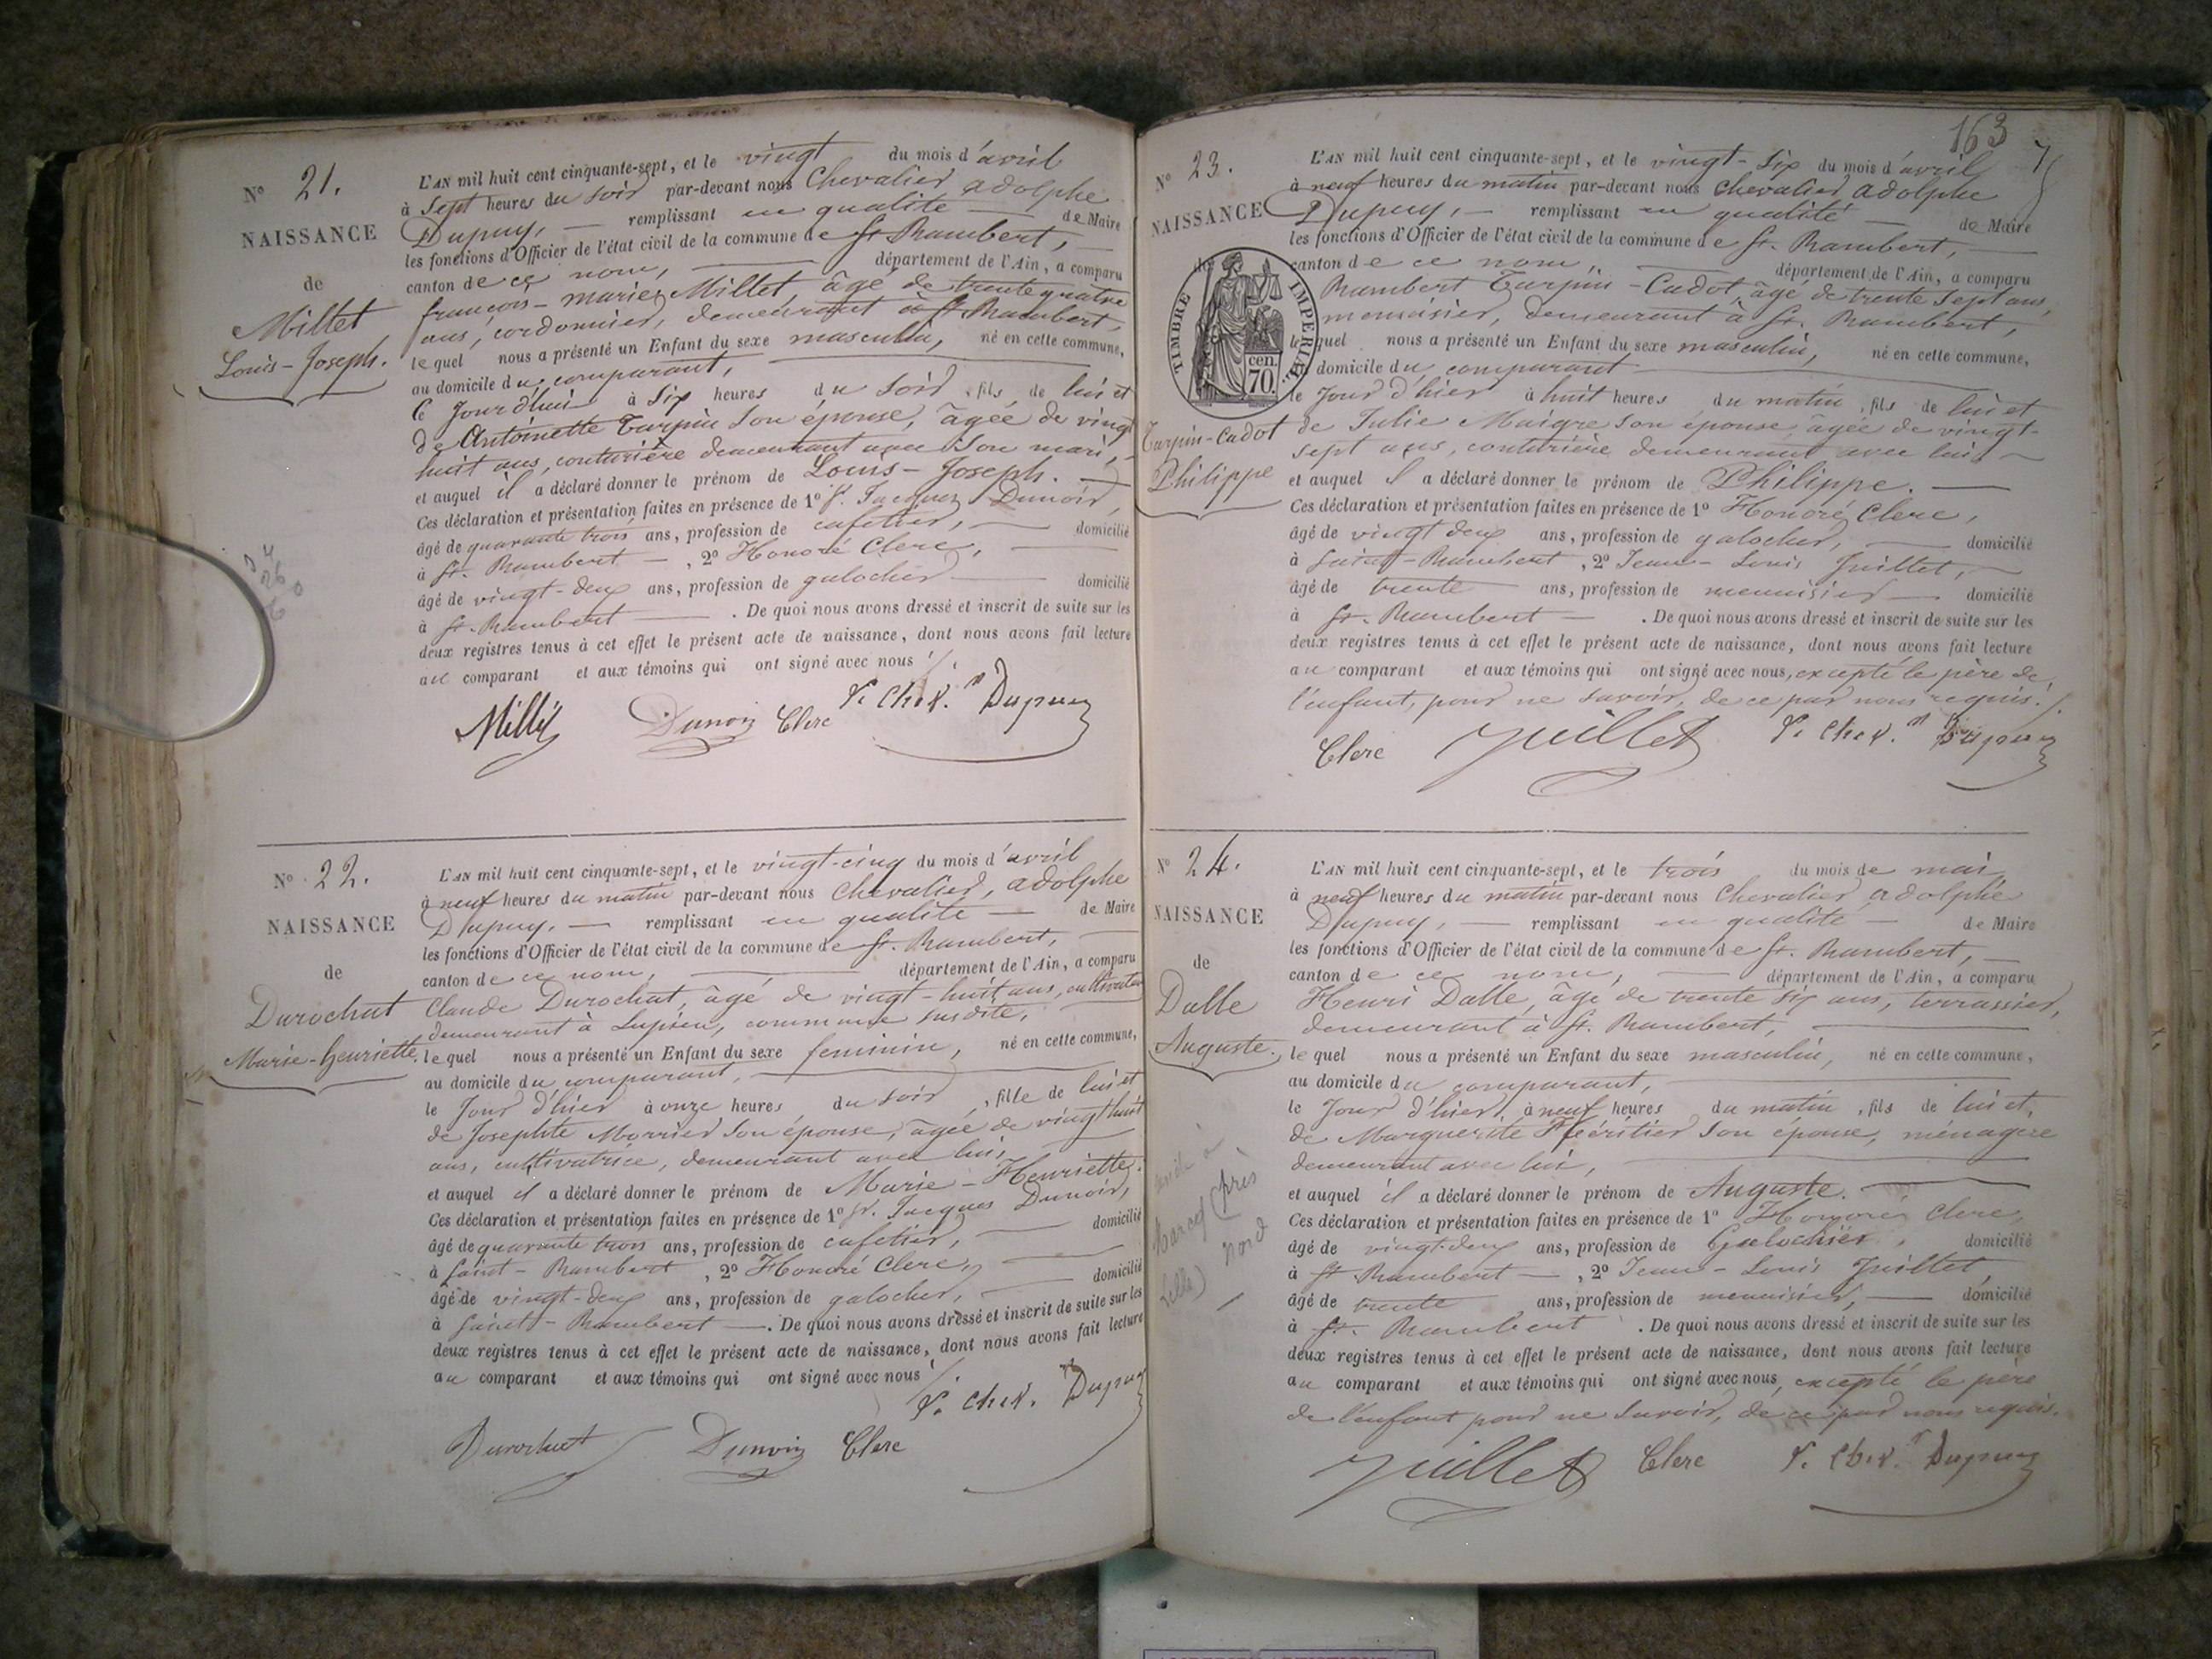 N° 21.
NAISSANCE
de
Millet
Louis-Joseph.
L'AN mil huit cent cinquante-sept, et le vingt du mois d'avril
à sept heures du soir par-devant nous Chevalier adolphe
Dupuy, — remplissant en qualité — de Maire
les fonctions d'Officier de l'état civil de la commune de St. Rambert,
canton de ce nom, département de l'Ain, a comparu
françois-marie Millet âgé de trente quatre
ans, cordonnier, demeurant à St Rambert,
lequel nous a présenté un Enfant du sexe masculin, né en cette commune,
au domicile du comparant,
ce jourd'hui à six heures du soir, fils de lui et
de Antoinette Turpin son épouse, âgée de vingt
huit ans, couturière demeurant avec son mari,
et auquel il a déclaré donner le prénom de Louis-Joseph.
Ces déclaration et présentation faites en présence de 1° Jacques Dunoir,
âgé de quarante trois ans, profession de cafetier, — domicilié
à St. Rambert —, 2° Honoré Clerc,
âgé de vingt-deux ans, profession de galocher — domicilié
à St. Rambert — . De quoi nous avons dressé et inscrit de suite sur les
deux registres tenus à cet effet le présent acte de naissance, dont nous avons fait lecture
au comparant et aux témoins qui ont signé avec nous
Dunoir Clerc Dupuy
N° 22.
NAISSANCE
de
Durochat
Marie-henriette.
L'AN mil huit cent cinquante-sept, et le vingt-cinq du mois d'avril
à neuf heures du matin par-devant nous Chevalier, adolphe
Dupuy, — remplissant en qualité — de Maire
les fonctions d'Officier de l'état civil de la commune de St. Rambert,
canton de ce nom, département de l'Ain, a comparu
Claude Durochat, âgé de vingt-huit ans, cultivateur
demeurant à Lupieu, commune susdite,
lequel nous a présenté un Enfant du sexe feminin, né en cette commune,
au domicile du comparant,
le jour d'hier à onze heures du soir, fille de lui et
de Josephte Morrier son épouse, âgée de vingt huit
ans, cultivatrice, demeurant avec lui,
et auquel il a déclaré donner le prénom de Marie-Henriette.
Ces déclaration et présentation faites en présence de 1° Jacques Dunoir,
âgé de quarante trois ans, profession de cafetier, — domicilié
à Saint-Rambert, 2° Honoré Clerc,
âgé de vingt-deux ans, profession de galocher, — domicilié
à Saint-Rambert —. De quoi nous avons dressé et inscrit de suite sur les
deux registres tenus à cet effet le présent acte de naissance, dont nous avons fait lecture
au comparant et aux témoins qui ont signé avec nous
Durochat Dunoir Clerc Dupuy
163
N° 23.
NAISSANCE
de
TIMBRE IMPERIAL
cen.
70.
Turpin-Cadot
Philippe
L'AN mil huit cent cinquante-sept, et le vingt-six du mois d'avril
à neuf heures du matin par-devant nous Chevalier adolphe
Dupuy, — remplissant en qualité — de Maire
les fonctions d'Officier de l'état civil de la commune de St. Rambert,
canton de ce nom, département de l'Ain, a comparu
Rambert Turpin-Cadot, âgé de trente sept ans,
menuisier, demeurant à St. Rambert,
lequel nous a présenté un Enfant du sexe masculin, né en cette commune,
domicile du comparant
le jour d'hier à huit heures du matin, fils de lui et
de Julie Maigre son épouse âgée de vingt-
sept ans, couturière demeurant avec lui
et auquel il a déclaré donner le prénom de Philippe. —
Ces déclaration et présentation faites en présence de 1° Honoré Clerc,
âgé de vingt deux ans, profession de galocher, — domicilié
à Saint-Rambert, 2° Jean-Louis Juillet,
âgé de trente ans, profession de menuisier — domicilié
à St. Rambert — . De quoi nous avons dressé et inscrit de suite sur les
deux registres tenus à cet effet le présent acte de naissance, dont nous avons fait lecture
au comparant et aux témoins qui ont signé avec nous, excepté le père de
l'enfant, pour ne savoir, de ce par nous requis.
Clerc Juillet Dupuy
N° 24.
NAISSANCE
de
Dalle
Auguste.
près
nord
L'AN mil huit cent cinquante-sept, et le trois du mois de mai
à neuf heures du matin par-devant nous Chevalier adolphe
Dupuy, — remplissant en qualité — de Maire
les fonctions d'Officier de l'état civil de la commune de St. Rambert,
canton de ce nom, département de l'Ain, a comparu
Henri Dalle, âgé de trente six ans, terrassier,
demeurant à St. Rambert,
lequel nous a présenté un Enfant du sexe masculin, né en cette commune,
au domicile du comparant,
le jour d'hier, à neuf heures du matin, fils de lui et,
de Marguerite Héritier son épouse, ménagère
demeurant avec lui,
et auquel il a déclaré donner le prénom de Auguste.
Ces déclaration et présentation faites en présence de 1° Honoré Clerc,
âgé de vingt-deux ans, profession de Galochier, domicilié
à St Rambert —, 2° Jean-Louis Juillet
âgé de trente ans, profession de menuisier, — domicilié
à St. Rambert . De quoi nous avons dressé et inscrit de suite sur les
deux registres tenus à cet effet le présent acte de naissance, dont nous avons fait lecture
au comparant et aux témoins qui ont signé avec nous, excepté le père
de l'enfant pour ne savoir, de ce par nous requis.
Juillet Clerc Dupuy